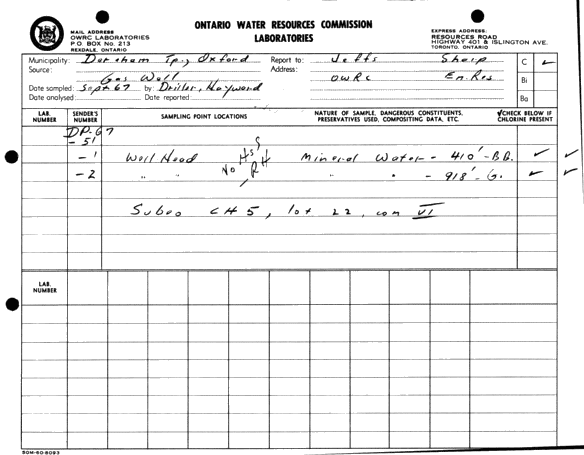 MAIL ADDRESS
OWRC LABORATORIES
P O BOX No. 213
REXDALE, ONTARIO
ONTARIO WATER RESOURCES COMMISSION
LABORATORIES
EXPRESS ADDRESS.
RESOURCES ROAD
HIGHWAY 401 & ISLINGTON AVE.
TORONTO, ONTARIO
Municipality: Dereham Tp., Oxford Report to: Jeffs Sharp C ✓
Source: Gas Well Address: OWRC En. Res Bi
Date sampled: Sept 67 by: Driller, Hayward
Date analysed Date reported Ba
LAB. NUMBER SENDER'S NUMBER SAMPLING POINT LOCATIONS NATURE OF SAMPLE, DANGEROUS CONSTITUENTS, PRESERVATIVES USED, COMPOSITING DATA, ETC. ✓CHECK BELOW IF CHLORINE PRESENT
DP-67
- 51
- 1 Well Head Mineral Water - 410' - BB. ✓ ✓
- 2 " " No " " - 918' - G. ✓ ✓
CH 5, lot 22, con VI
LAB. NUMBER
50M-60-8093